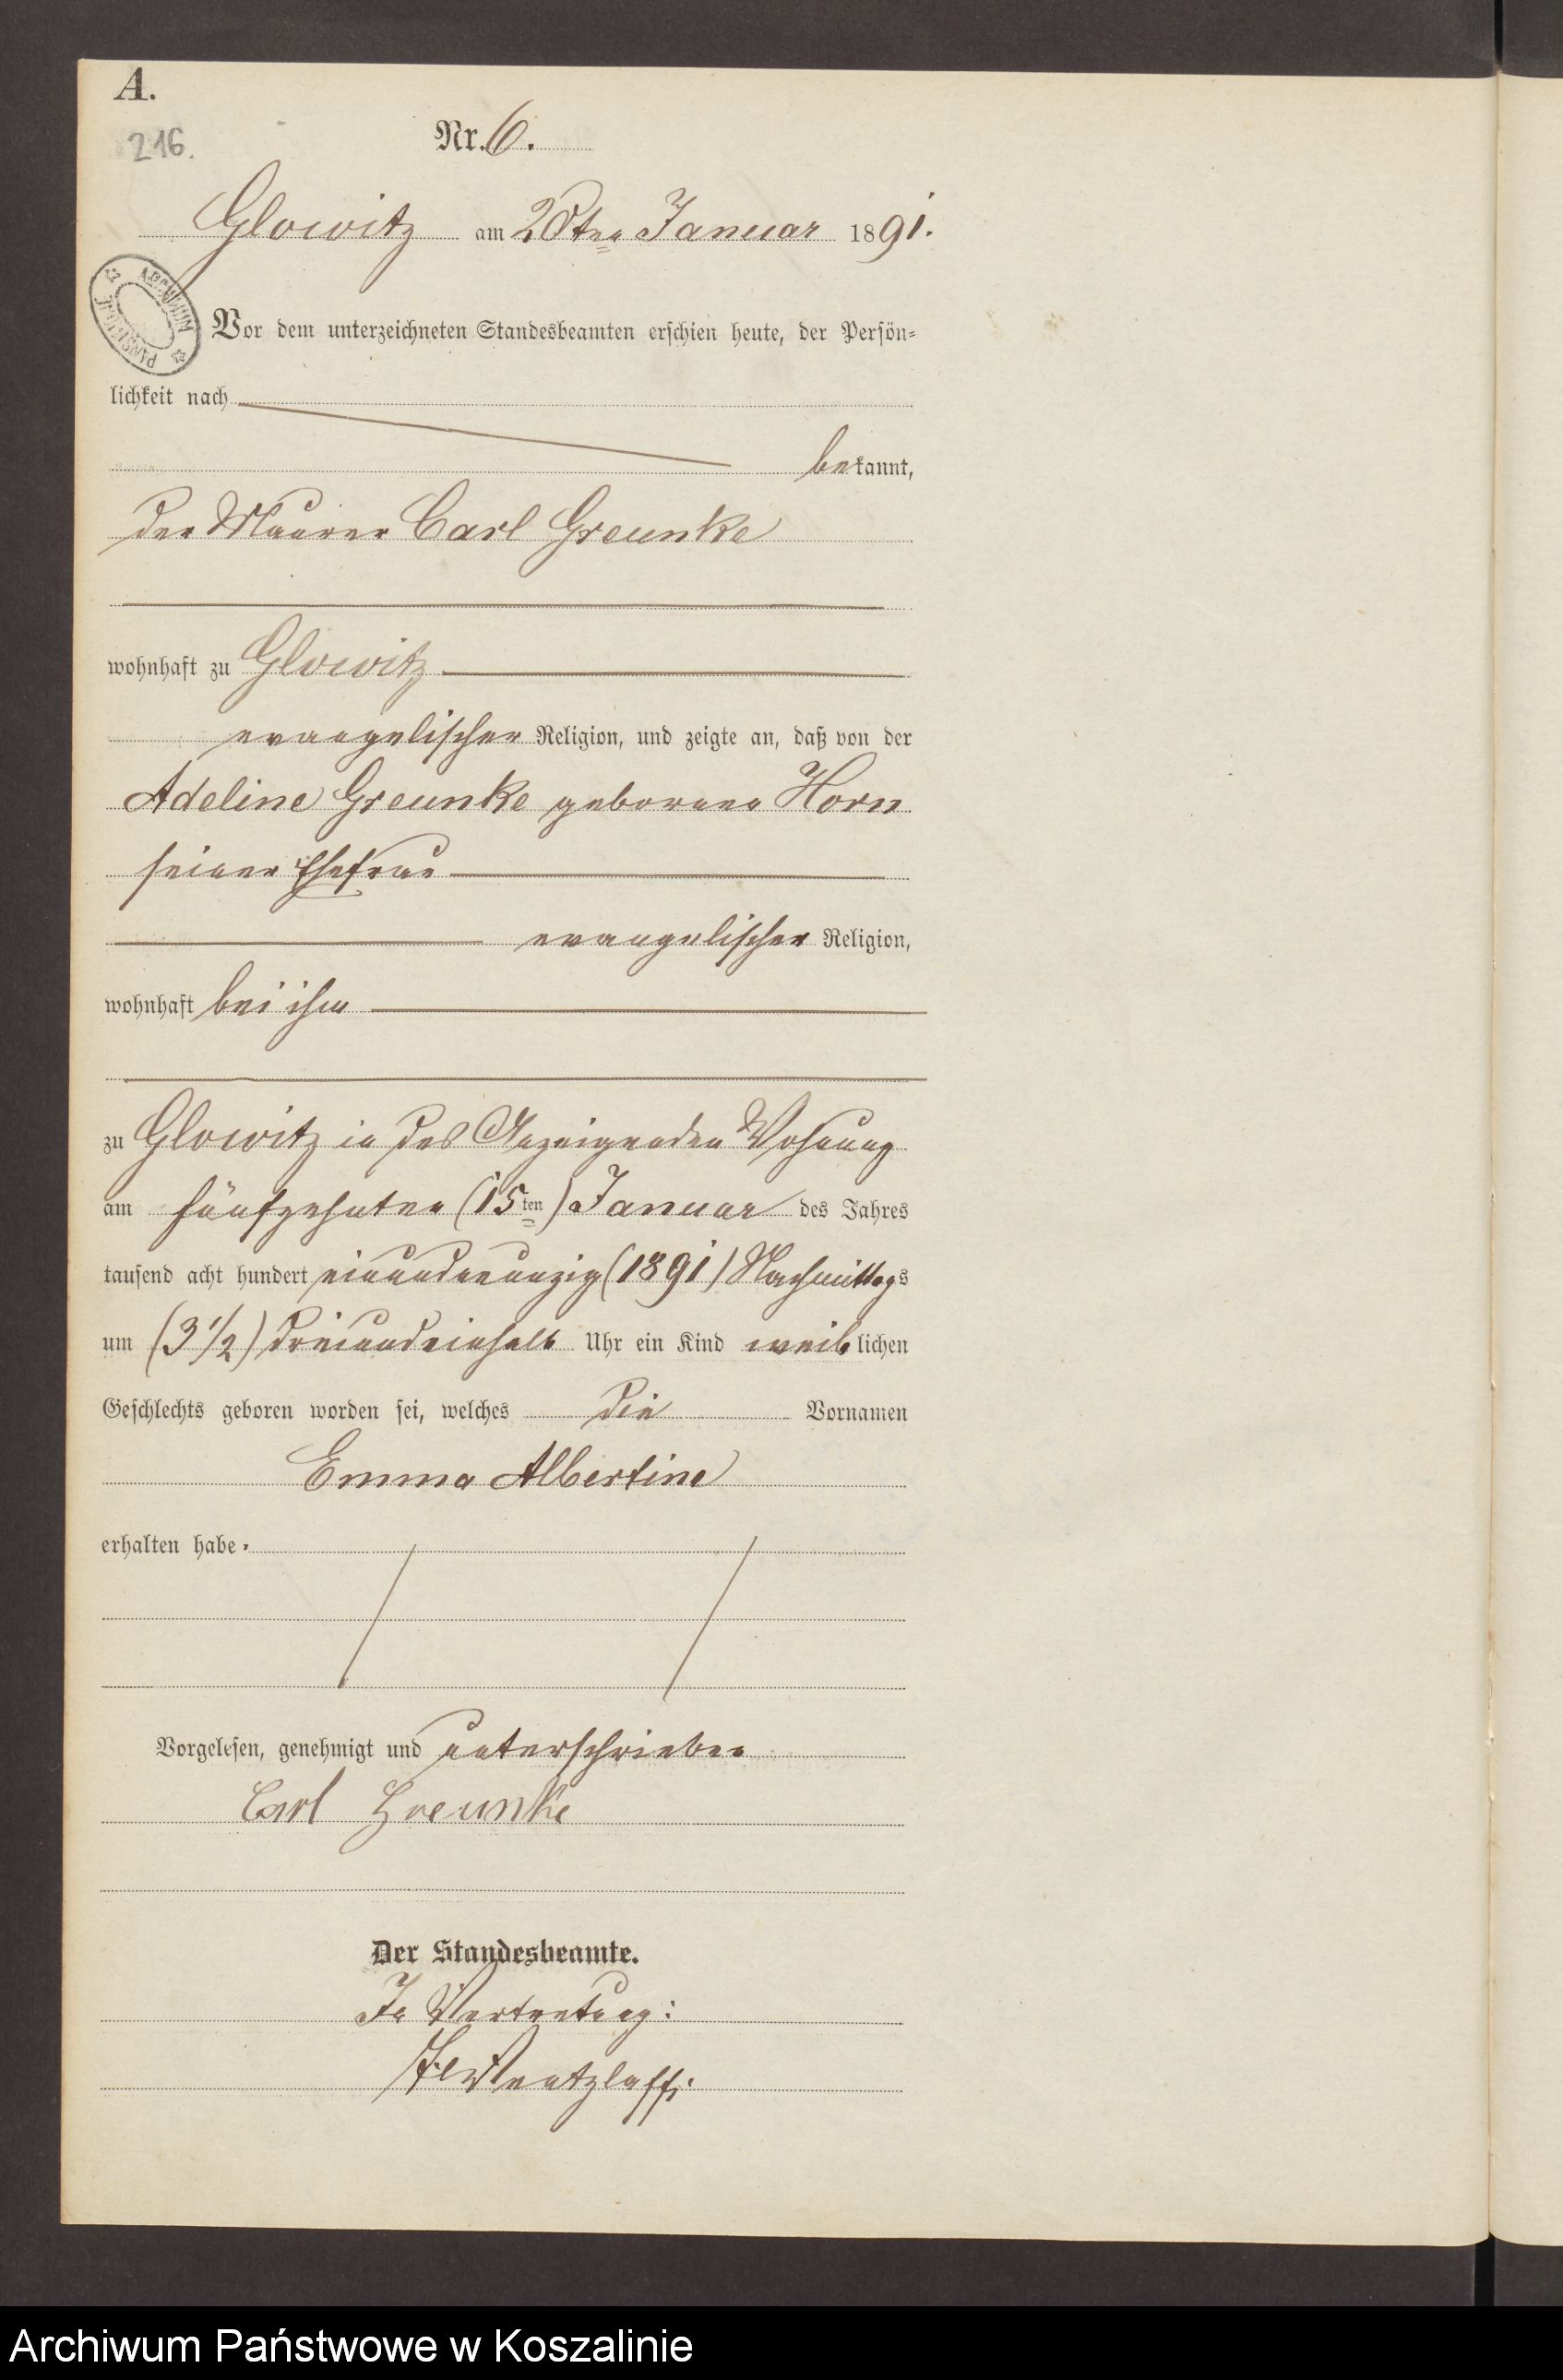 A.
216.
Nr. 6.
Glowitz am 20ten Januar 1891.
ARCHIWUM PAŃSTWOWE
Vor dem unterzeichneten Standesbeamten erschien heute, der Persön-
lichkeit nach
bekannt,
der Maurer Carl Greunke
wohnhaft zu Glowitz
evangelischer Religion, und zeigte an, daß von der
Adeline Greunke geborenen Horn
seiner Ehefrau
evangelischer Religion,
wohnhaft bei ihm
zu Glowitz in des Anzeigenden Wohnung
am fünfzehnten (15ten) Januar des Jahres
tausend acht hundert einundneunzig (1891) Nachmittags
um (3 1/2) dreiundeinhalb Uhr ein Kind weiblichen
Geschlechts geboren worden sei, welches die Vornamen
Emma Albertine
erhalten habe.
Vorgelesen, genehmigt und unterschrieben
Carl Greunke
Der Standesbeamte.
In Vertretung:
Wentzlaff.
Archiwum Państwowe w Koszalinie